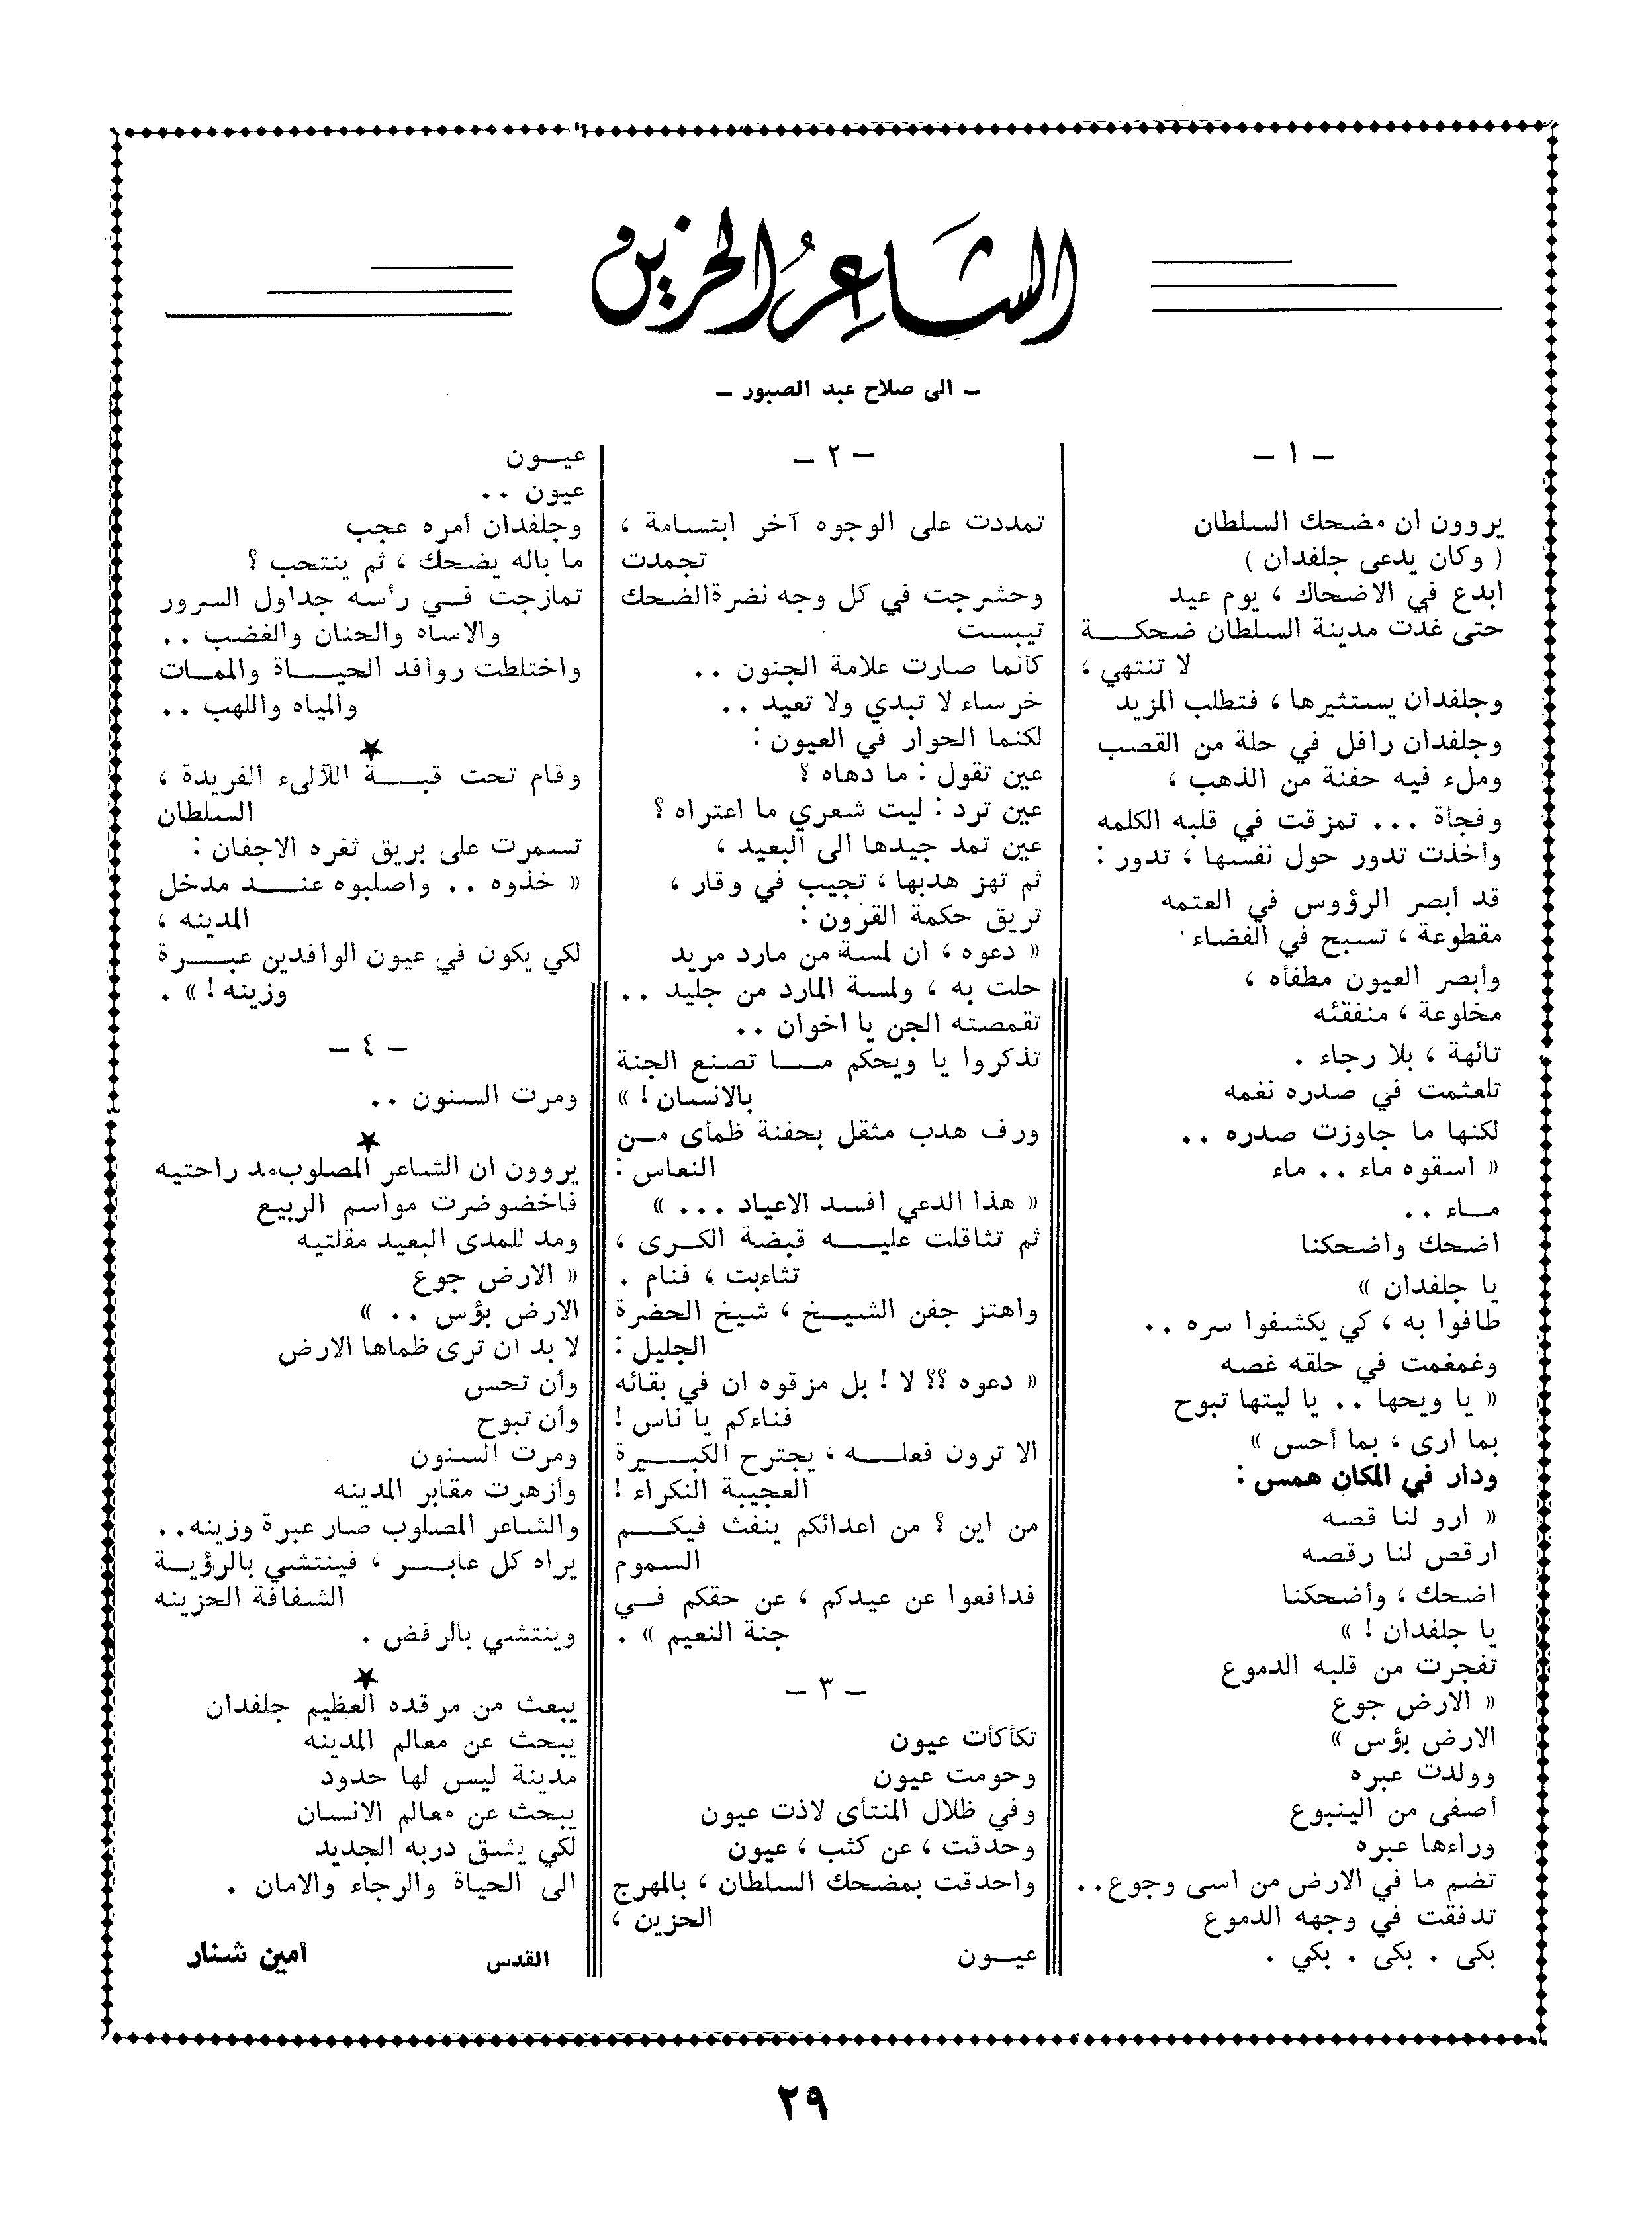 الشاعر الحزين
ـ الى صلاح عبد الصبور ـ
ـ ١ ـ
يروون ان مضحك السلطان
( وكان يدعى جلفدان )
ابدع في الاضحاك ، يوم عيد
حتى غدت مدينة السلطان ضحكــــة
لا تنتهي ،
وجلفدان يستثيرها ، فتطلب المزيد
وجلفدان رافل في حلة من القصب
وملء فيه حفنة من الذهب ،
وفجأة ... تمزقت في قلبه الكلمه
وأخذت تدور حول نفسها ، تدور :
قد أبصر الرؤوس في العتمه
مقطوعة ، تسبح في الفضاء
وأبصر العيون مطفأه ،
مخلوعة ، منفقئه
تائهة ، بلا رجاء .
تلعثمت في صدره نغمه
لكنها ما جاوزت صدره ..
« اسقوه ماء .. ماء
مـــاء ..
اضحك واضحكنا
يا جلفدان »
طافوا به ، كي يكشفوا سره ..
وغمغمت في حلقه غصه
« يا ويحها .. يا ليتها تبوح
بما ارى ، بما أحس »
ودار في المكان همس :
« ارو لنا قصه
ارقص لنا رقصه
اضحك ، وأضحكنا
يا جلفدان ! »
تفجرت من قلبه الدموع
« الارض جوع
الارض بؤس »
وولدت عبره
أصفى من الينبوع
وراءها عبره
تضم ما في الارض من اسى وجوع ..
تدفقت في وجهه الدموع
بكى . بكى . بكي .
ـ ٢ ـ
تمددت على الوجوه آخر ابتسامة ،
تجمدت
وحشرجت في كل وجه نضرة الضحك
تيبست
كأنما صارت علامة الجنون ..
خرساء لا تبدي ولا تعيد ..
لكنما الحوار في العيون :
عين تقول : ما دهاه ؟
عين ترد : ليت شعري ما اعتراه ؟
عين تمد جيدها الى البعيد ،
ثم تهز هدبها ، تجيب في وقار ،
تريق حكمة القرون :
« دعوه ، ان لمسة من مارد مريد
حلت به ، ولمسة المارد من جليد ..
تقمصته الجن يا اخوان ..
تذكروا يا ويحكم مـــا تصنع الجنة
بالانسان ! »
ورف هدب مثقل بحفنة ظمأى مــن
النعاس :
« هذا الدعي افسد الاعياد ... »
ثم تثاقلت عليـــه قبضة الكــرى ،
تثاءبت ، فنام .
واهتز جفن الشيـــخ ، شيخ الحضرة
الجليل :
« دعوه ؟؟ لا ! بل مزقوه ان في بقائه
فناءكم يا ناس !
الا ترون فعلـــه ، يجترح الكبـــيرة
العجيبة النكراء !
من اين ؟ من اعدائكم ينفث فيكـــم
السموم
فدافعوا عن عيدكم ، عن حقكم فــي
جنة النعيم » .
ـ ٣ ـ
تكأكأت عيون
وحومت عيون
وفي ظلال المنتأى لاذت عيون
وحدقت ، عن كثب ، عيون
واحدقت بمضحك السلطان ، بالمهرج
الحزين ،
عيـــون
عيـــون
عيون ..
وجلفدان أمره عجب
ما باله يضحك ، ثم ينتحب ؟
تمازجت فــي رأسه جداول السرور
والاساه والحنان والغضب ..
واختلطت روافد الحيـــاة والممــات
والمياه واللهب ..
★
وقام تحت قبـــة اللآلىء الفريدة ،
السلطان
تسمرت على بريق ثغره الاجفان :
« خذوه .. واصلبوه عنـــد مدخل
المدينه ،
لكي يكون في عيون الوافدين عبـــرة
وزينه ! » .
ـ ٤ ـ
ومرت السنون ..
★
يروون ان الشاعر المصلوب مد راحتيه
فاخضوضرت مواسم الربيع
ومد للمدى البعيد مقلتيه
« الارض جوع
الارض بؤس .. »
لا بد ان ترى ظماها الارض
وأن تحس
وأن تبوح
ومرت السنون
وأزهرت مقابر المدينه
والشاعر المصلوب صار عبرة وزينه ..
يراه كل عابـــر ، فينتشي بالرؤيــة
الشفافة الحزينه
وينتشي بالرفض .
★
يبعث من مرقده العظيم جلفدان
يبحث عن معالم المدينه
مدينة ليس لها حدود
يبحث عن معالم الانسان
لكي يشق دربه الجديد
الى الحياة والرجاء والامان .
القدس
أمين شنار
٢٩